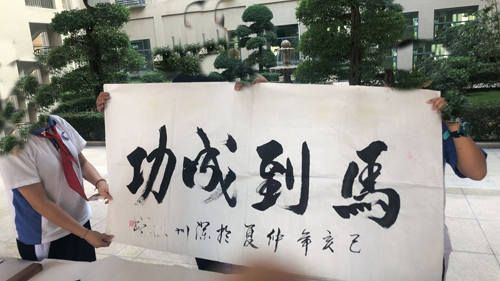 馬到成功
己亥年仲夏於深圳